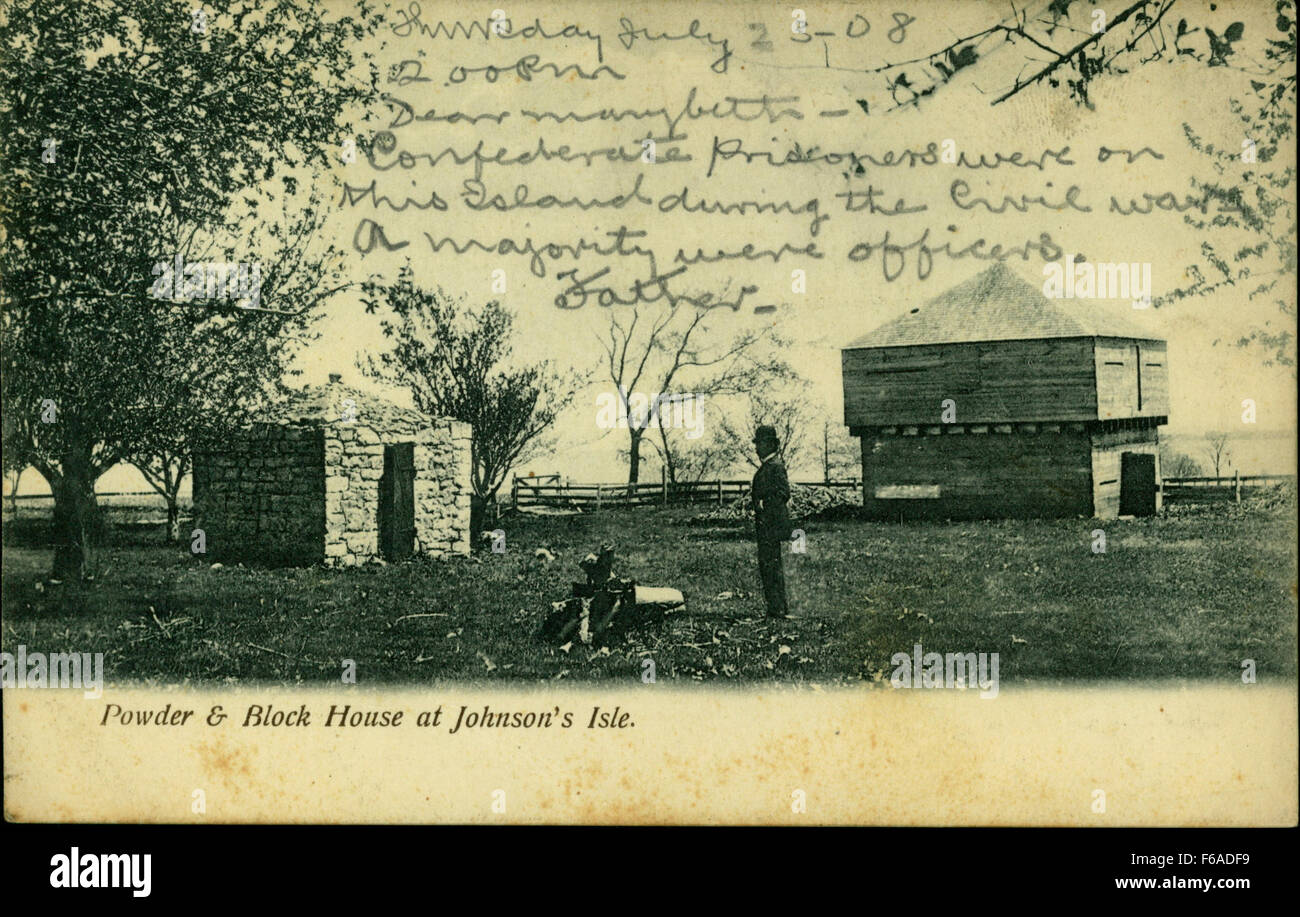 Thursday July 23-08
2 00 Pm
Dear marybeth -
Confederate prisoners were on
this Island during the Civil war.
A majority were officers.
Father -
Powder & Block House at Johnson's Isle.
alamy
Image ID: F6ADF9
www.alamy.com